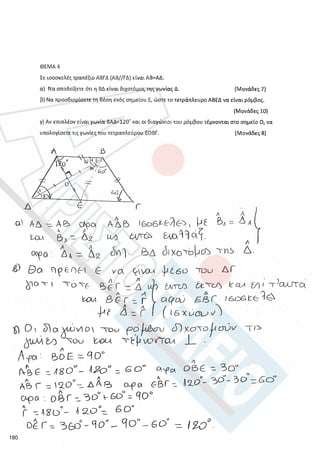 ΘΕΜΑ 4
Σε ισοσκελές τραπέζιο ΑΒΓΔ (ΑΒ//ΓΔ) είναι ΑΒ=ΑΔ.
α) Να αποδείξετε ότι η ΒΔ είναι διχοτόμος της γωνίας Δ. (Μονάδες 7)
β) Να προσδιορίσετε τη θέση ενός σημείου Ε, ώστε το τετράπλευρο ΑΒΕΔ να είναι ρόμβος.
(Μονάδες 10)
γ) Αν επιπλέον είναι γωνία ΒΑΔ=120° και οι διαγώνιοι του ρόμβου τέμνονται στο σημείο Ο, να
υπολογίσετε τις γωνίες του τετραπλεύρου ΕΟΒΓ. (Μονάδες 8)
Α Β
Ο
Δ Ε Γ
α) ΑΔ = ΑΒ αρα ΑΔ̂Β ισοσκελές, με Β̂₁ = Δ̂₁
και Β̂₁ = Δ̂₂ ως εντός εναλλάξ.
αρα: Δ̂₁ = Δ̂₂ δηλ. ΒΔ διχοτόμος της Δ̂.
β) Θα πρέπει Ε να είναι μέσο του ΔΓ
γιατί τότε ΒΕ̂Γ = Δ̂ ως εντός εκτός και επί ταυτά
και ΒΕ̂Γ = Γ̂ αφού ΕΒ̂Γ ισοσκελές
με Δ̂ = Γ̂ (ισχύουν)
γ) Οι διαγώνιοι του ρόμβου διχοτομούν τις
γωνίες του και τέμνονται ⊥.
Άρα: ΒΟ̂Ε = 90°
ΑΒ̂Ε = 180° - 120° = 60° αρα ΟΒ̂Ε = 30°
ΑΒ̂Γ = 120° = ΔΑ̂Β αρα ΕΒ̂Γ = 120° - 30° - 30° = 60°
αρα: ΟΒ̂Γ = 30° + 60° = 90°.
Γ̂ = 180° - 120° = 60°
ΟΕ̂Γ = 360° - 90° - 90° - 60° = 120°.
180